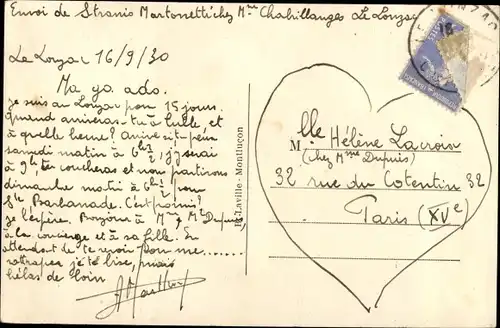 Envoi de Stranis Martorretti chez Mme Chabrillanges Le Lonzac
Le Lonzac 16/9/30
Ma yo ado.
Je suis au Lonzac pour 15 jours.
Quand arriveras-tu à Tulle, et
à quelle heure? Arrive si tu peux
samedi matin à 6h 1/2, j'y serai
à 9h, tu coucheras et nous partirons
dimanche matin à 6h 1/2 pour
Ste Barbanade. C'est promis?
je l'espère. Bonjour à Mr & Mme Dupuis,
à la concierge et à sa fille. En
attendant de te revoir bon me.......
rattraper je te bise, mais
hélas de loin
R. Laville - Montluçon
Mlle Hélène Lacroix
(chez Mme Dupuis)
32 rue du Cotentin 32
Paris (XVe)